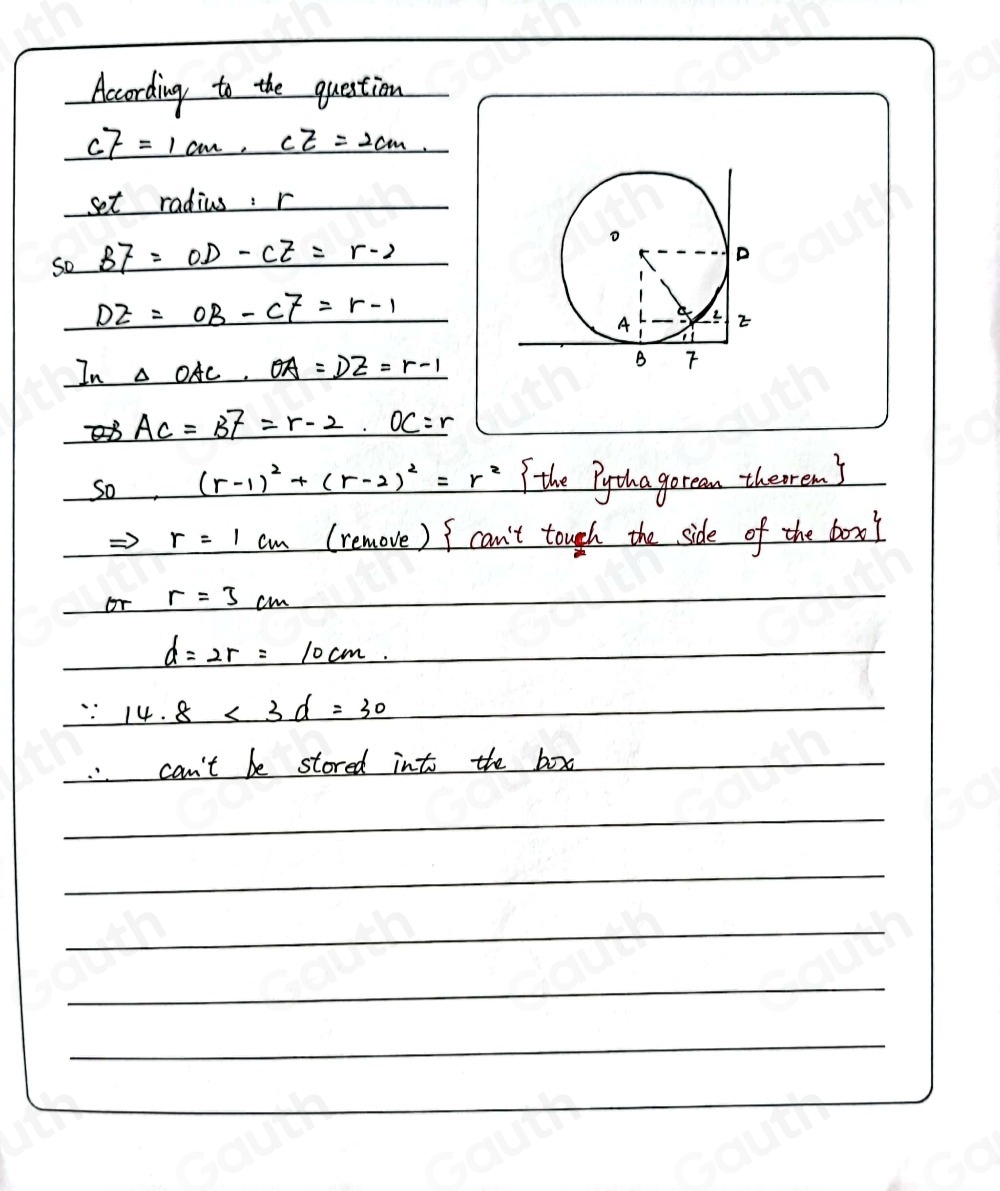 According to the question
CF = 1 cm, CE = 2cm.
set radius : r
so BF = OD - CE = r-2
DE = OB - CF = r-1
In △ OAC. OA = DE = r-1
AC = BF = r-2. OC = r
so, (r-1)² + (r-2)² = r² {the Pythagorean theorem}
⇒ r = 1 cm (remove) {can't touch the side of the box}
or r = 5 cm
d = 2r = 10cm.
∵ 14.8 < 3d = 30
∴ can't be stored into the box
O
D
A
C
2
E
1
B
F
Gauth